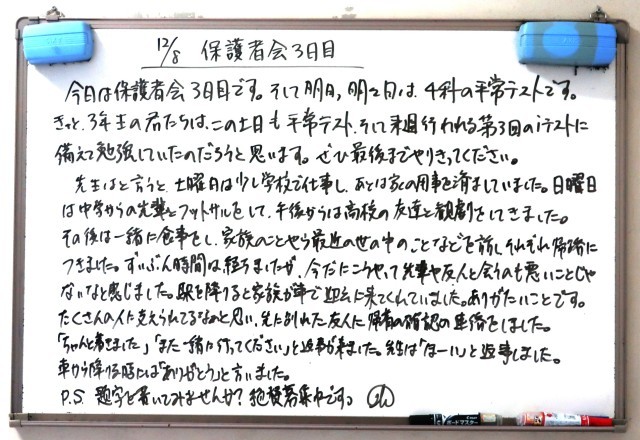 12/8 保護者会3日目
今日は保護者会3日目です。そして明日,明々後日は、4科の平常テストです。
きっと、3年生の君たちは、この土日も平常テスト、そして来週行われる第3回のiテストに
備えて勉強していたのだろうと思います。ぜひ最後までやりきってください。
先生はと言うと、土曜日は少し学校で仕事し、あとは家の用事を済ましていました。日曜日
は中学からの先輩とフットサルをして、午後からは高校の友達と観劇をしてきました。
その後は一緒に食事をし、家族のことやら最近の世の中のことなどを話し、それぞれ帰路に
つきました。ずいぶん時間は経ちましたが、今だにこうやって先輩や友人と会うのも悪いことじゃ
ないなと感じました。駅を降りると家族が車で迎えに来てくれていました。ありがたいことです。
たくさんの人に支えられてるなと思い、先に別れた友人に帰宅の確認の連絡をしました。
「ちゃんと着きました」「また一緒に行ってください」と返事が来ました。先生は「はーい」と返事しました。
車から降りる時には「ありがとう」と言いました。
P.S 題字を書いてみませんか?絶賛募集中です。
ボードマスター